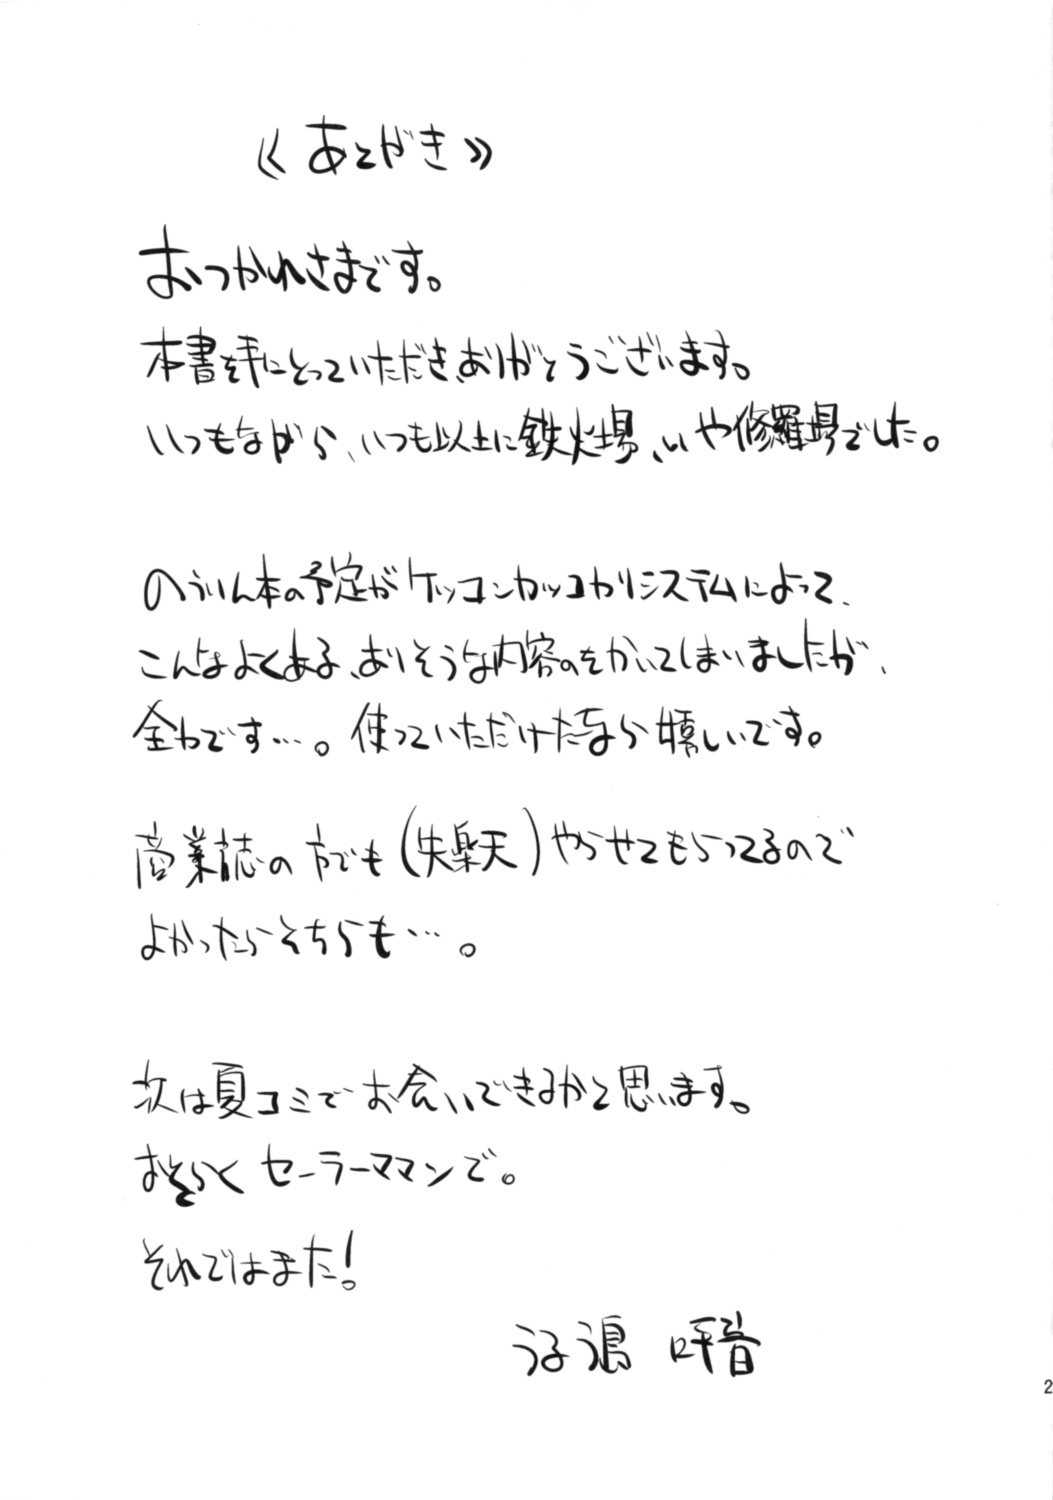 《あとがき》
おつかれさまです。
本書を手にとっていただき、ありがとうございます。
いつもながら、いつも以上に鉄火場、いや修羅場でした。
のうりん本の予定がケッコンカッコカリシステムによって、
こんなよくある、ありそうな内容のをかいてしまいましたが、
全わです…。使っていただけたなら嬉しいです。
商業誌の方でも(失楽天)やらせてもらってるので
よかったらそちらも…。
次は夏コミでお会いできるかと思います。
おそらくセーラーママンで。
それではまた!
うるう島 呼音
2